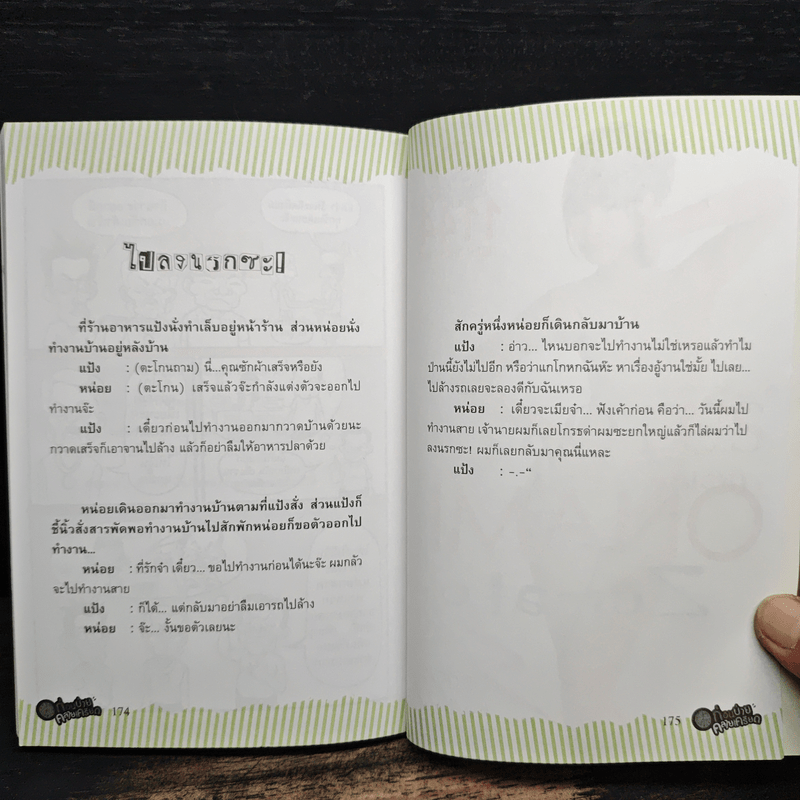 ไปลงนรกซะ!
ที่ร้านอาหารแป้งนั่งทำเล็บอยู่หน้าร้าน ส่วนหน่อยนั่ง
ทำงานบ้านอยู่หลังบ้าน
แป้ง : (ตะโกนถาม) นี่...คุณซักผ้าเสร็จหรือยัง
หน่อย : (ตะโกน) เสร็จแล้วจ๊ะกำลังแต่งตัวจะออกไป
ทำงานจ๊ะ
แป้ง : เดี๋ยวก่อนไปทำงานออกมากวาดบ้านด้วยนะ
กวาดเสร็จก็เอาจานไปล้าง แล้วก็อย่าลืมให้อาหารปลาด้วย
หน่อยเดินออกมาทำงานบ้านตามที่แป้งสั่ง ส่วนแป้งก็
ชี้นิ้วสั่งสารพัดพอทำงานบ้านไปสักพักหน่อยก็ขอตัวออกไป
ทำงาน...
หน่อย : ที่รักจ๋า เดี๋ยว... ขอไปทำงานก่อนได้นะจ๊ะ ผมกลัว
จะไปทำงานสาย
แป้ง : ก็ได้... แต่กลับมาอย่าลืมเอารถไปล้าง
หน่อย : จ๊ะ... งั้นขอตัวเลยนะ
174
สักครู่หนึ่งหน่อยก็เดินกลับมาบ้าน
แป้ง : อ่าว... ไหนบอกจะไปทำงานไม่ใช่เหรอแล้วทำไม
ป่านนี้ยังไม่ไปอีก หรือว่าแกโกหกฉันห๊ะ หาเรื่องอู้งานใช่มั้ย ไปเลย...
ไปล้างรถเลยจะลองดีกับฉันเหรอ
หน่อย : เดี๋ยวจะเมียจ๋า... ฟังเค้าก่อน คือว่า... วันนี้ผมไป
ทำงานสาย เจ้านายผมก็เลยโกรธด่าผมซะยกใหญ่แล้วก็ไล่ผมว่าไป
ลงนรกซะ! ผมก็เลยกลับมาคุณนี่แหละ
แป้ง : -.-"
175